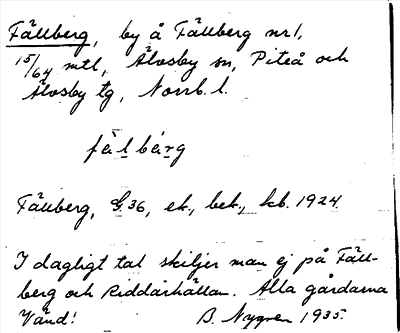 Fällberg, by å Fällberg nr 1,
15/64 mtl, Älvsby sn, Piteå och
Älvsby tg, Norrb. l.
fälbärg
Fällberg, G. 36, ek., bek., kb. 1924.
I dagligt tal skiljer man ej på Fäll-
berg och Riddarhällan. Alla gårdarna
Vänd! B. Nygren 1935.